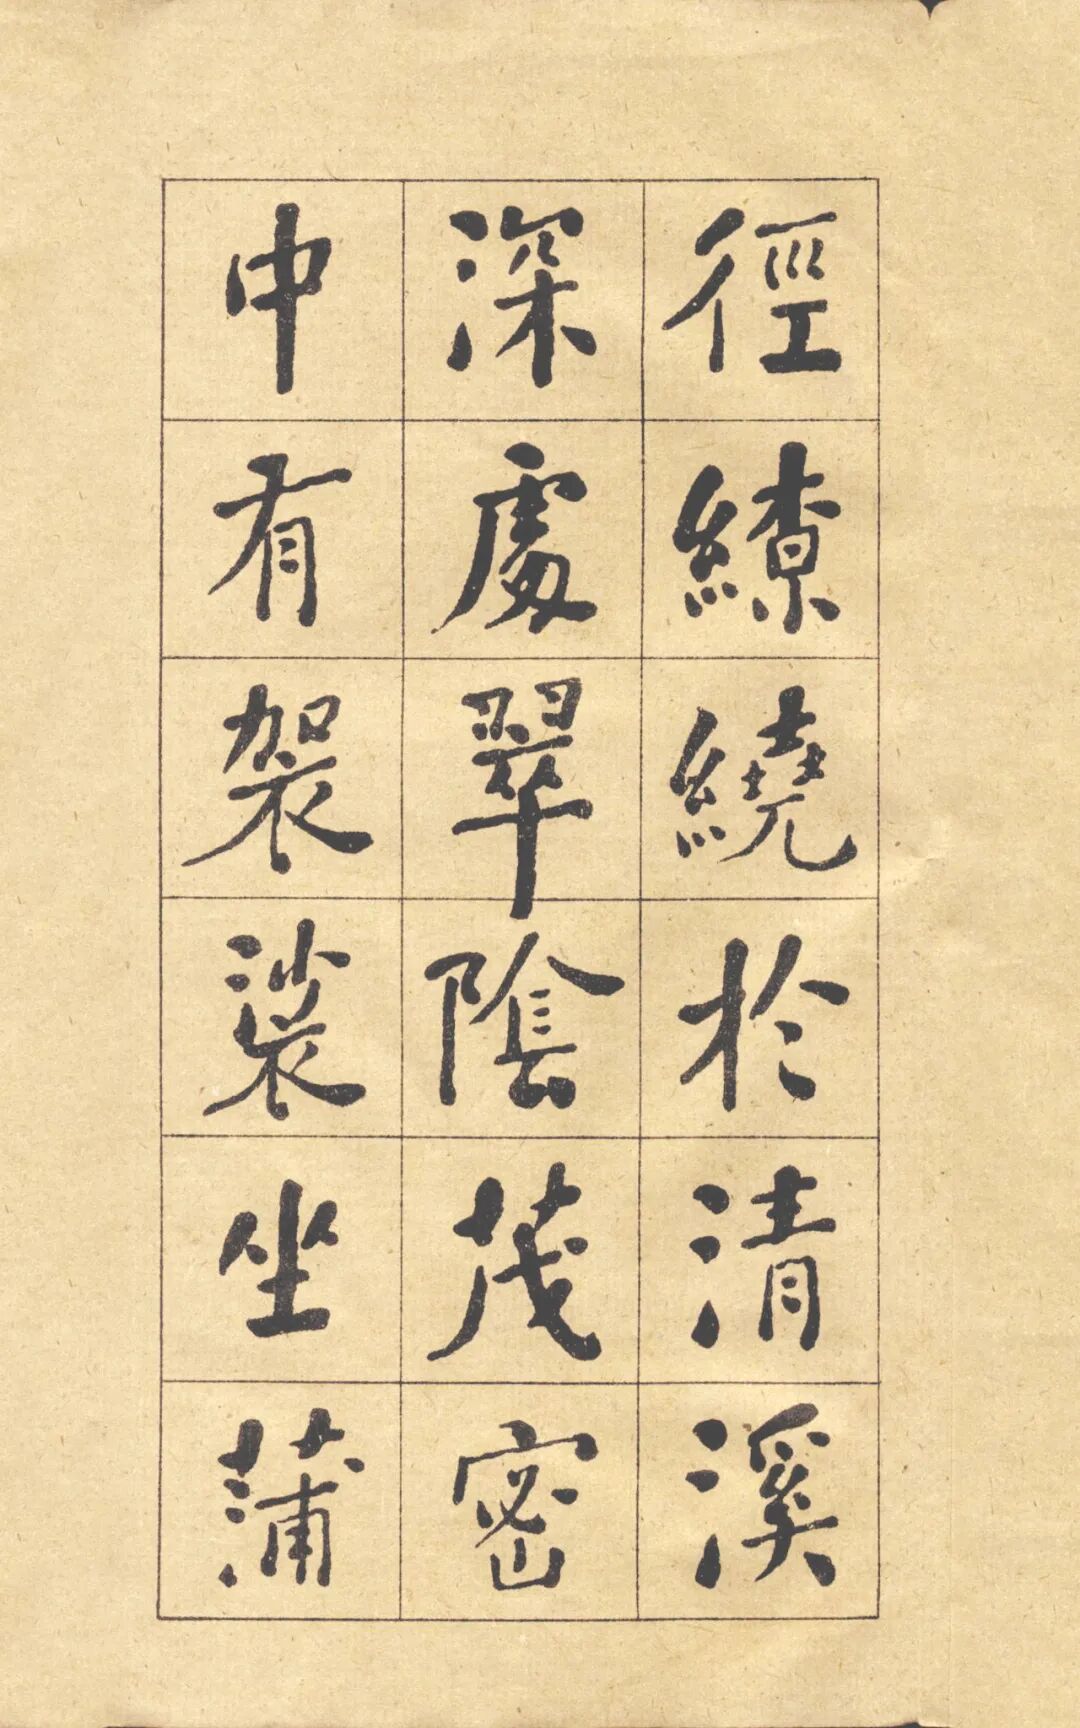 徑繚繞於清溪
深處翠陰茂密
中有袈裟坐蒲